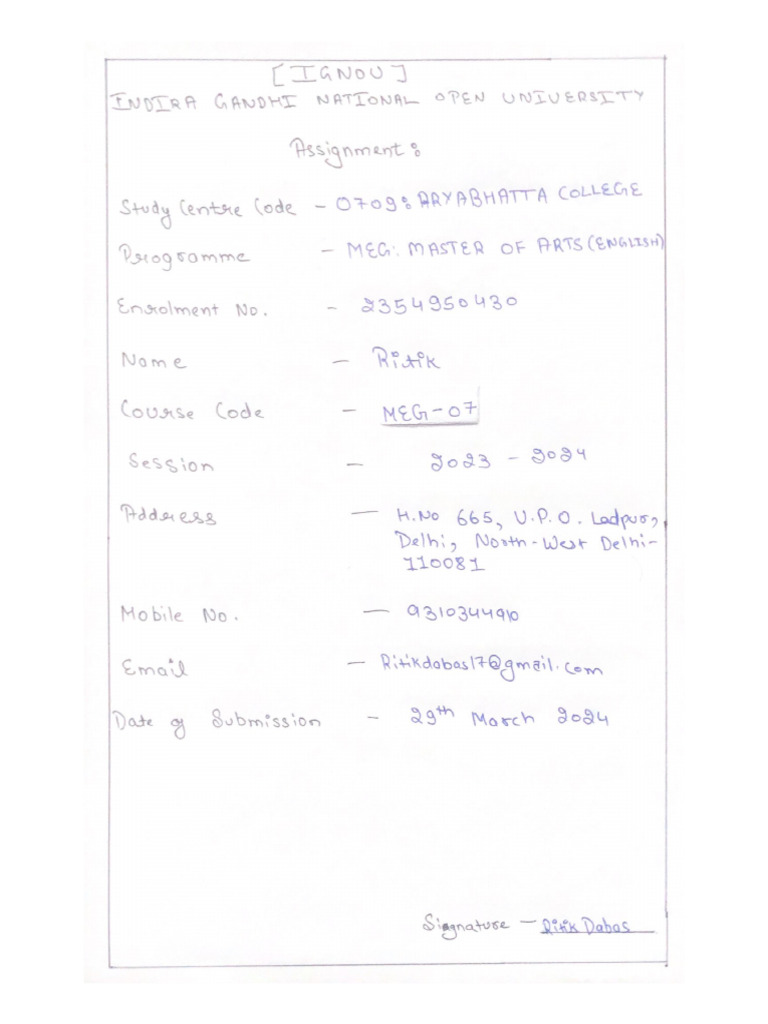 [IGNOU]
INDIRA GANDHI NATIONAL OPEN UNIVERSITY
Assignment:
Study Centre Code - 0709: ARYABHATTA COLLEGE
Programme - MEG: MASTER OF ARTS (ENGLISH)
Enrolment No. - 2354950430
Name - Ritik
Course Code - MEG-07
Session - 2023 - 2024
Address - H.No 665, V.P.O. Ladpur,
Delhi, North-West Delhi-
110081
Mobile No. - 9310344910
Email - Ritikdabas17@gmail.com
Date of Submission - 29th March 2024
Signature - Ritik Dabas